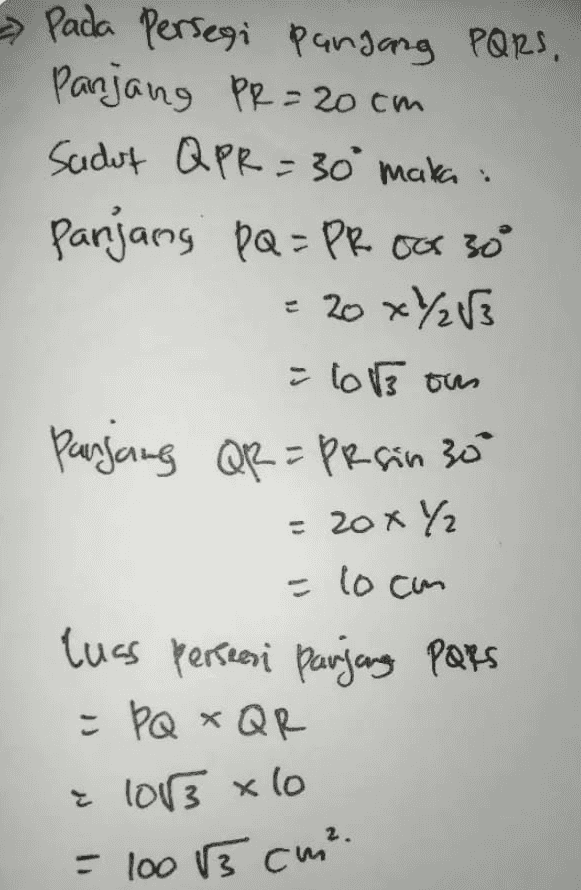 ⇒ Pada Persegi panjang PQRS,
Panjang PR = 20 cm
Sudut QPR = 30° maka :
Panjang PQ = PR cos 30°
= 20 x 1/2√3
= 10√3 cm
Panjang QR = PR sin 30°
= 20 x 1/2
= 10 cm
Luas persegi panjang PQRS
= PQ x QR
= 10√3 x 10
= 100 √3 cm².